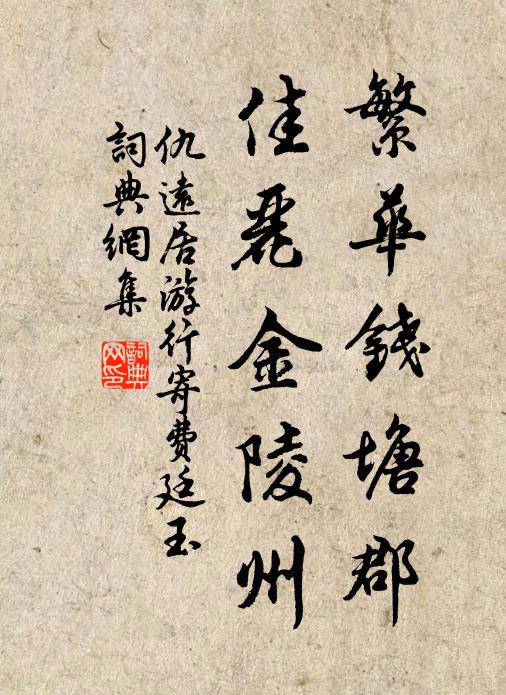 繁華錢塘郡
佳麗金陵州
仇遠居游行寄費廷玉
詞典網集
詞典網印